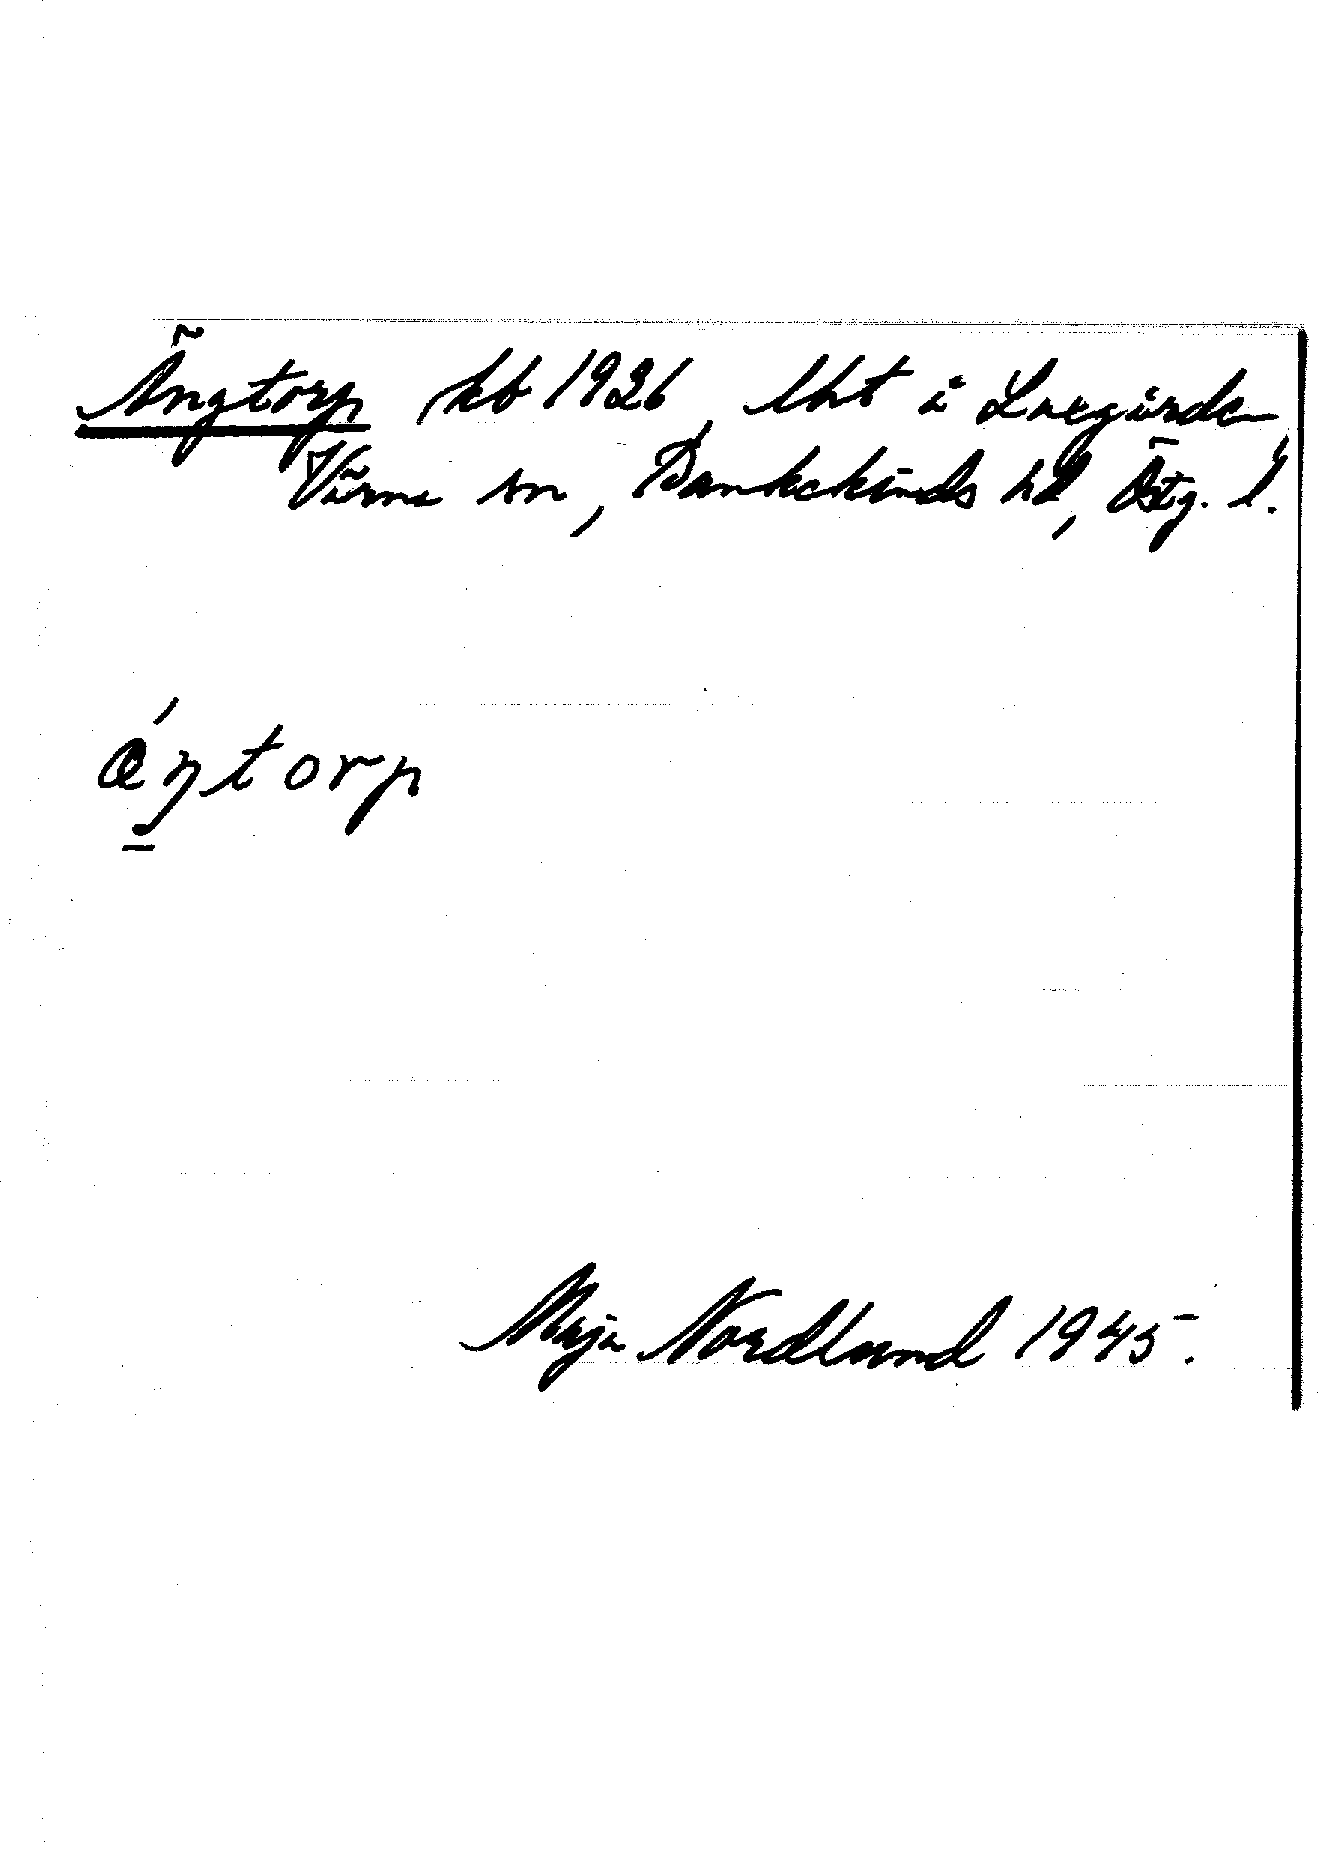 Ängtorp, kb 1926, lht i Laxgärde,
Värna sn, Bankekinds hd, Östg. l.
ǽŋtorp
Maja Nordlund 1945.